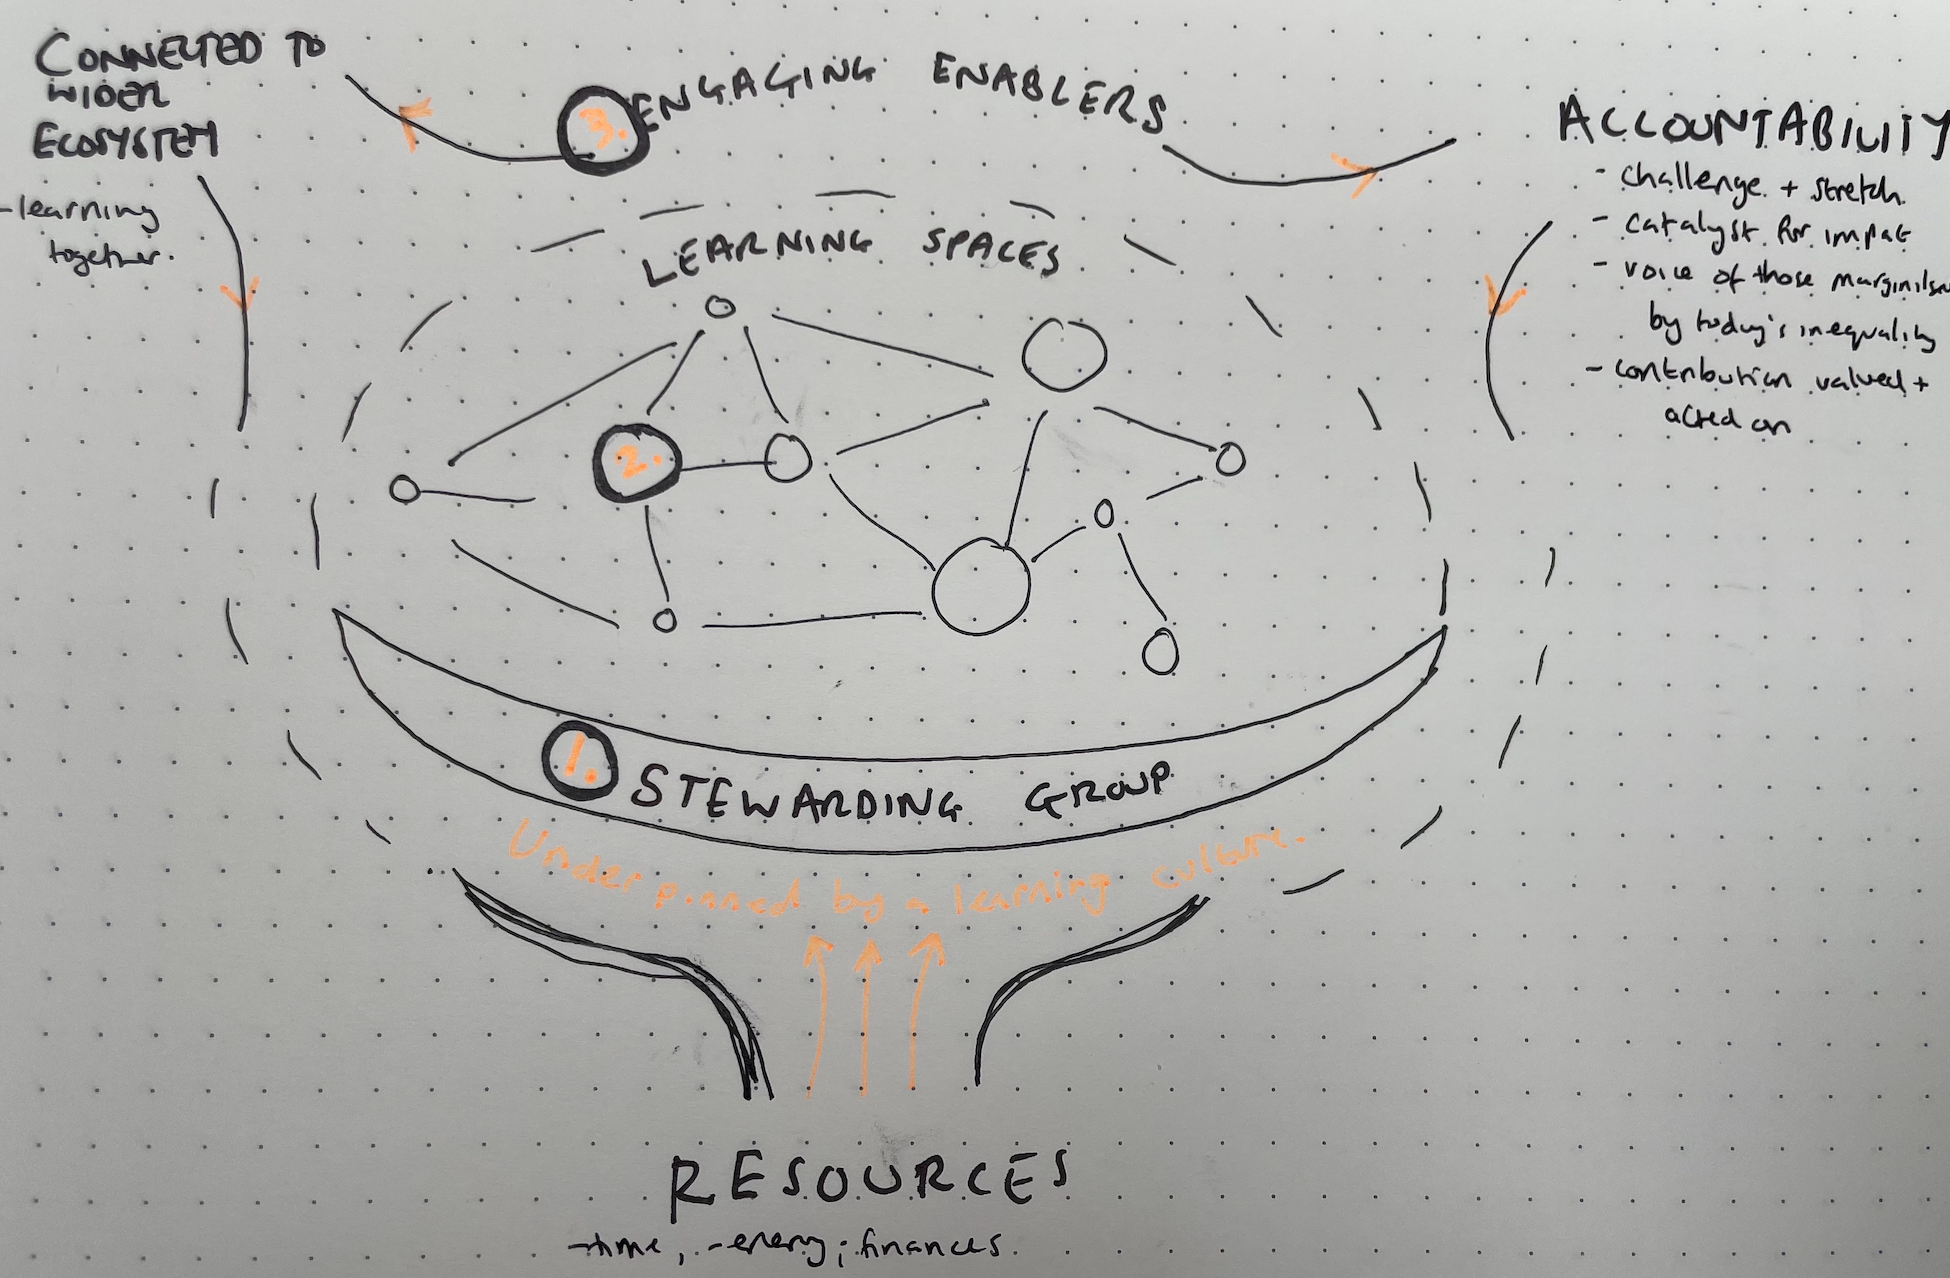 CONNECTED TO
WIDER
ECOSYSTEM
- learning
together.
3. ENGAGING ENABLERS
ACCOUNTABILITY
- challenge + stretch
- catalyst for impact
- voice of those
by today's inequality
- contribution valued +
acted on
LEARNING SPACES
2.
1. STEWARDING GROUP
Underpinned by a learning culture.
RESOURCES
- time, - energy, finances